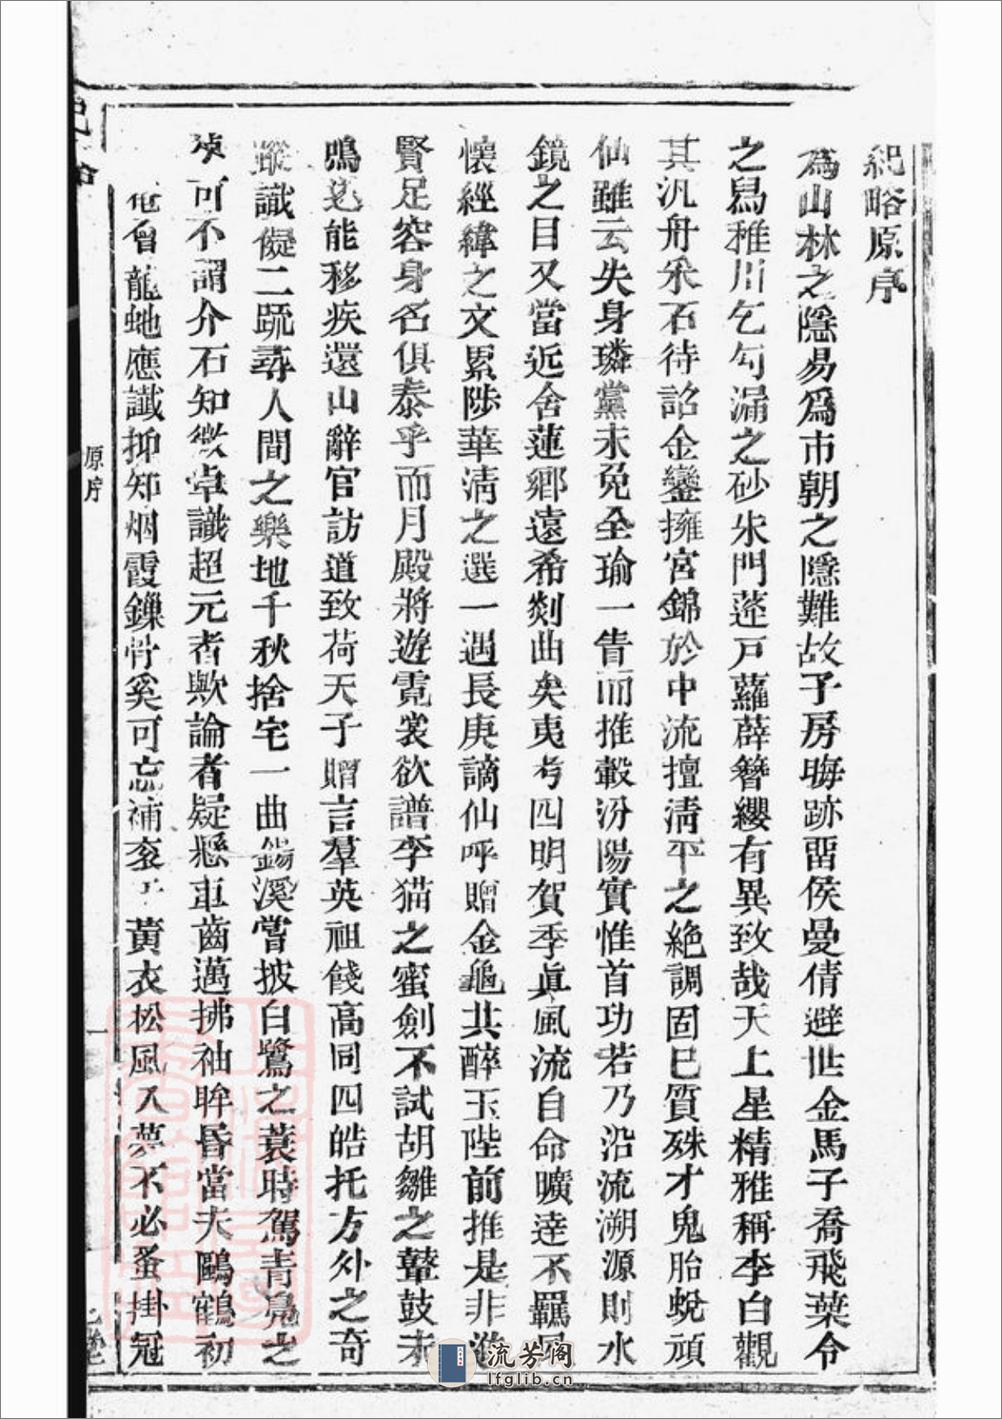 紀略原序
為山林之隱易爲市朝之隱難故子房晦跡畱侯曼倩避世金馬子喬飛葉令
之舄稚川乞勾漏之砂朱門蓬戸蘿薜簪纓有異致哉天上星精雅稱李白觀
其汎舟采石待詔金鑾擁宮錦於中流擅淸平之絶調固已質殊才鬼胎蛻頑
仙雖云失身璘黨未免全瑜一眚而推轂汾陽實惟首功若乃沿流溯源則水
鏡之目又當近舍蓮鄉遠希剡曲矣夷考四明賀季眞風流自命曠逹不羈
懐經緯之文累陟華淸之選一遇長庚謫仙呼贈金龜共醉玉陛前推是非
賢足容身名俱泰乎而月殿將遊霓裳欲譜李猫之蜜劍不試胡雛之鼙鼓未
鳴能移疾還山辭官訪道致荷天子贈言羣英祖餞高同四皓托方外之奇
蹤識儗二䟽尋人間之樂地千秋捨宅一曲鍚溪嘗披白鷺之蓑時駕靑鳧之
可不謂介石知微卓識超元者歟論者疑懸車齒邁拂袖眸昏當夫鷗鶴初
龍虵應讖抑知烟霞鏁骨奚可忘補衮黃衣松風入夢不必蚤掛冠
原序
一
流芳阁
lfglib.cn